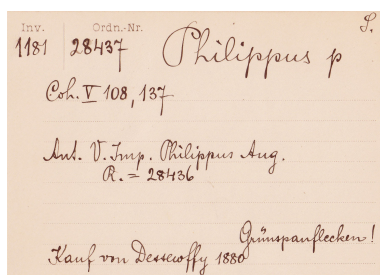 Inv. Ordn.-Nr. S.
1181 28437 Philippus p
Coh. V 108, 137
Ant. V. Imp. Philippus Aug.
R. = 28436
Grünspanflecken!
Kauf von Dessewffy 1880